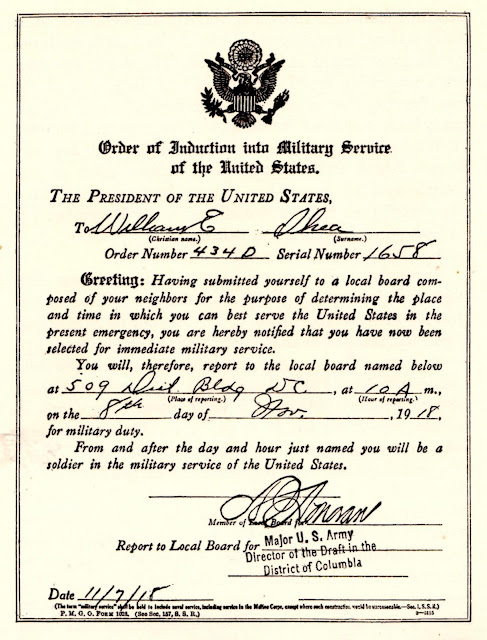 Order of Induction into Military Service
of the United States.
THE PRESIDENT OF THE UNITED STATES,
To William E Shea
(Christian name.) (Surname.)
Order Number 434 D Serial Number 1658
Greeting: Having submitted yourself to a local board com-
posed of your neighbors for the purpose of determining the place
and time in which you can best serve the United States in the
present emergency, you are hereby notified that you have now been
selected for immediate military service.
You will, therefore, report to the local board named below
at 509 Dist Bldg DC, at 10 A m.,
(Place of reporting.) (Hour of reporting.)
on the 8th day of Nov., 1918,
for military duty.
From and after the day and hour just named you will be a
soldier in the military service of the United States.
Member of Local Board for
Report to Local Board for Major U. S. Army
Director of the Draft in the
District of Columbia
Date 11/7/18
(The term "military service" shall be held to include naval service, including service in the Marine Corps, except where such construction would be unreasonable.—Sec. 1, S. S. R.)
P. M. G. O. FORM 1028. (See Sec. 157, S. S. R.)